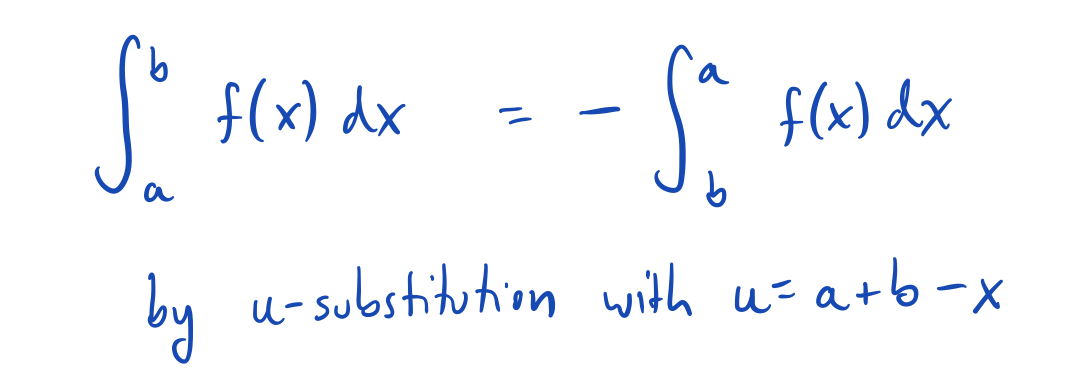 ∫_a^b f(x) dx = - ∫_b^a f(x) dx
by u-substitution with u = a+b-x